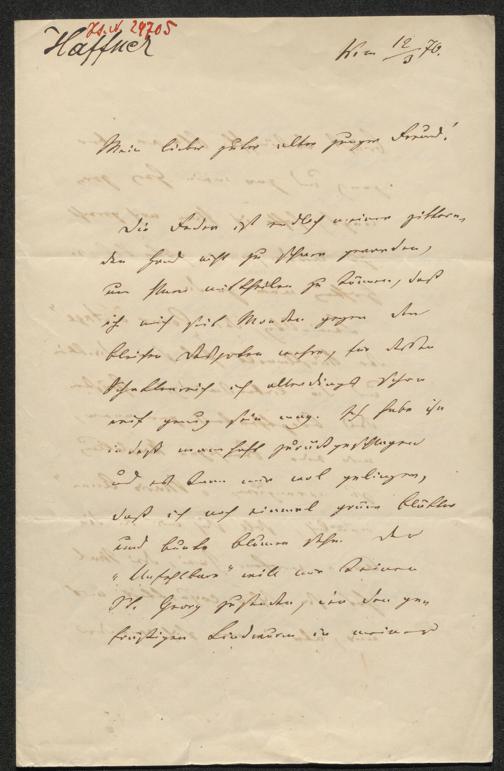 J.N. 24705
Haffner
12/3 76.
Mein lieber guter alter junger Freund!
Die Feder ist endlich meiner zittern-
den Hand nicht zu schwer geworden,
um Ihnen mittheilen zu können, daß
ich mich seit Monden gegen den
bleichen Despoten wehre, für dessen
Schattenreich ich allerdings schon
reif genug sein mag. Ich habe ihn
indeß mannhaft zurückgeschlagen
und es kann mir wol gelingen,
daß ich noch einmal grüne Blätter
und bunte Blumen sehe. Der
"Unfehlbare" will mir keinen
St. Georg zusenden, der den
Lindwurm in meiner